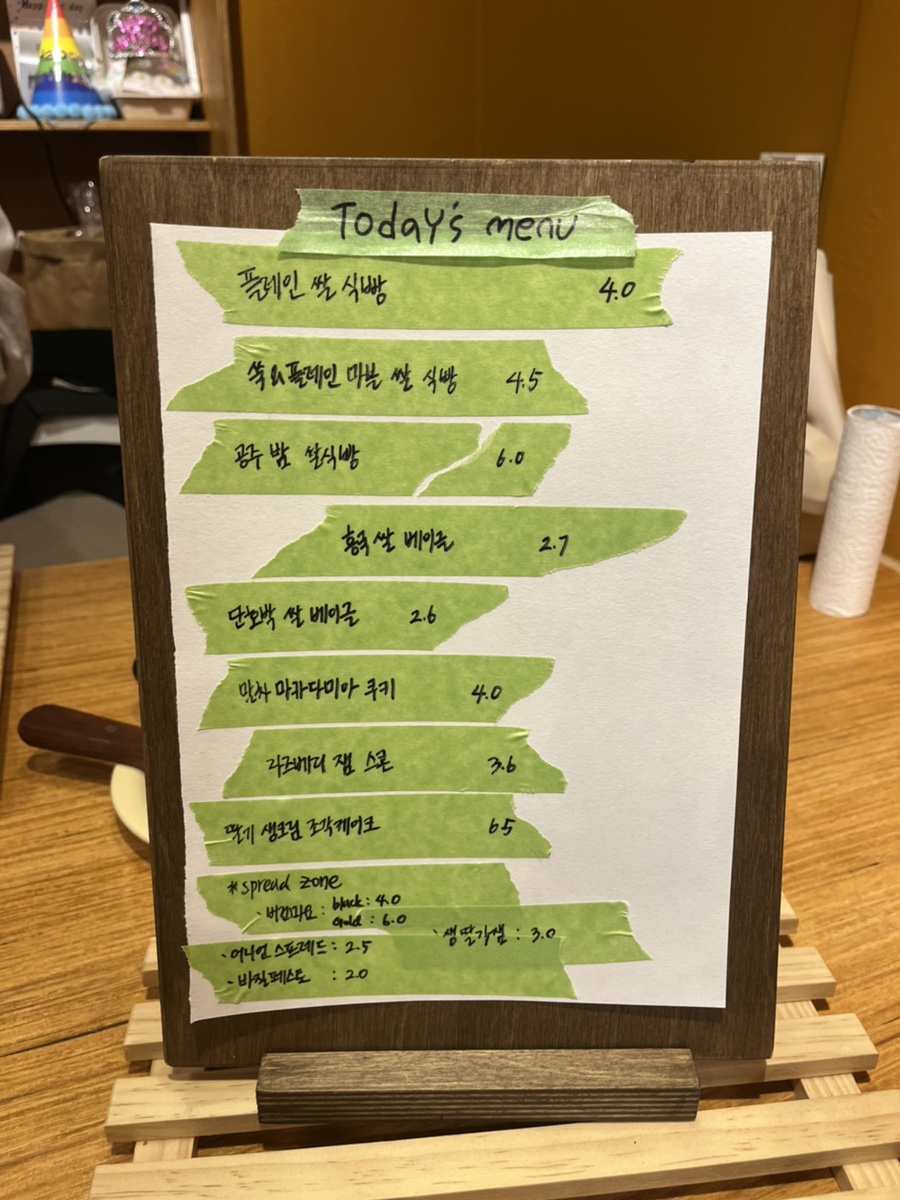 Today's menu
플레인 쌀 식빵 4.0
쑥&플레인 마블 쌀 식빵 4.5
공주 밤 쌀식빵 6.0
홍국 쌀 베이글 2.7
단호박 쌀 베이글 2.6
말차 마카다미아 쿠키 4.0
라즈베리 잼 스콘 3.6
딸기 생크림 조각케이크 65
*spread zone
· 비건마요 : black : 4.0
Gold : 6.0
· 생딸기잼 : 3.0
· 어니언 스프레드 : 2.5
· 바질페스토 : 2.0